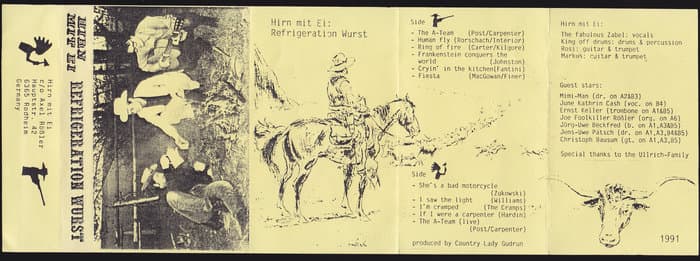 Hirn mit Ei
c/o Axel Rößler
Hauptstr. 42
6365 Rodheim
Germany
HIRN
MIT EI
REFRIGERATION WURST
Hirn mit Ei:
Refrigeration Wurst
Side
- The A-Team (Post/Carpenter)
- Human fly (Rorschach/Interior)
- Ring of fire (Carter/Kilgore)
- Frankenstein conquers the
world (Johnston)
- Cryin' in the kitchen(Fantini)
- Fiesta (MacGowan/Finer)
Side
- She's a bad motorcycle
(Zukowski)
- I saw the light (Williams)
- I'm cramped (The Cramps)
- If I were a carpenter (Hardin)
- The A-Team (live)
(Post/Carpenter)
produced by Country Lady Gudrun
Hirn mit Ei:
The fabulous Zabel: vocals
King off drums: drums & percussion
Rossi: guitar & trumpet
Markus: guitar & trumpet
Guest stars:
Mimi-Man (dr, on A2&B3)
June Kathrin Cash (voc. on B4)
Ernst Keller (trombone on A1&B5)
Joe Foolkiller Rößler (org. on A6)
Jörg-Uwe Beckfred (b. on A1,A3&B5)
Jens-Uwe Patsch (dr. on A1,A3,B4&B5)
Christoph Bausum (gt. on A1,A3,B5)
Special thanks to the Ullrich-Family
1991